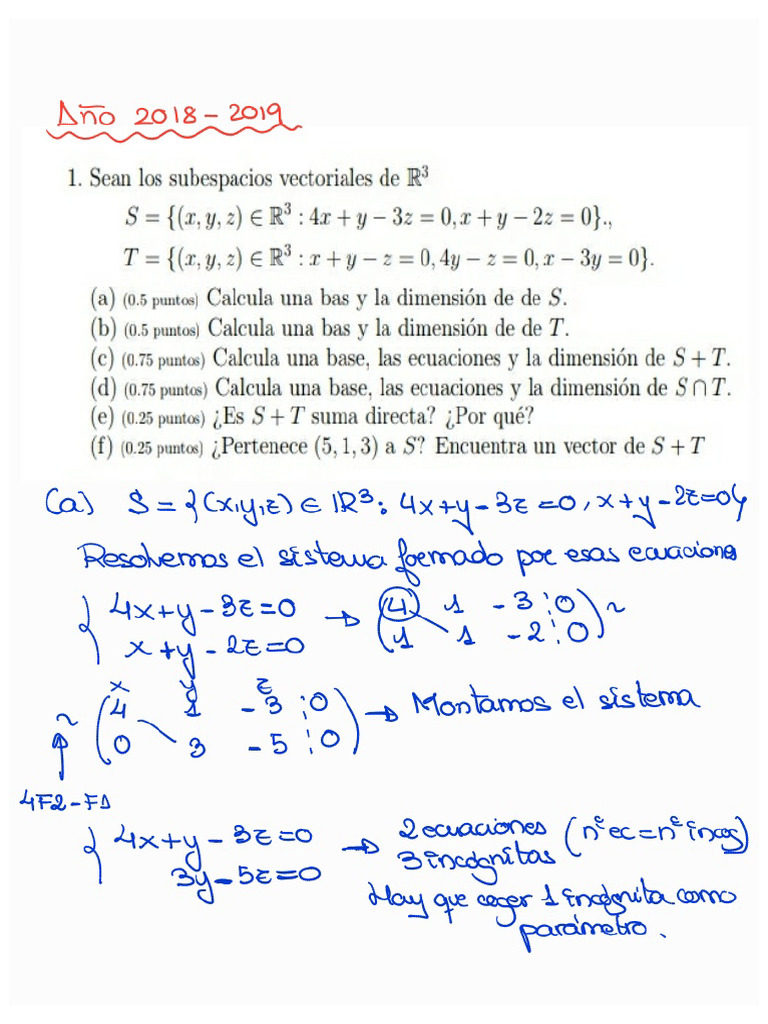 Año 2018-2019
1. Sean los subespacios vectoriales de ℝ³
S = {(x, y, z) ∈ ℝ³ : 4x + y − 3z = 0, x + y − 2z = 0}.,
T = {(x, y, z) ∈ ℝ³ : x + y − z = 0, 4y − z = 0, x − 3y = 0}.
(a) (0.5 puntos) Calcula una bas y la dimensión de de S.
(b) (0.5 puntos) Calcula una bas y la dimensión de de T.
(c) (0.75 puntos) Calcula una base, las ecuaciones y la dimensión de S + T.
(d) (0.75 puntos) Calcula una base, las ecuaciones y la dimensión de S ∩ T.
(e) (0.25 puntos) ¿Es S + T suma directa? ¿Por qué?
(f) (0.25 puntos) ¿Pertenece (5, 1, 3) a S? Encuentra un vector de S + T
(a) S = {(x,y,z) ∈ ℝ³: 4x+y-3z=0, x+y-2z=0}
Resolvemos el sistema formado por esas ecuaciones
{ 4x+y-3z=0 → ( 4 1 -3 ⋮ 0 ) ~
x+y-2z=0 ( 1 1 -2 ⋮ 0 )
x y z
~ ( 4 1 -3 ⋮ 0 ) → Montamos el sistema
( 0 3 -5 ⋮ 0 )
4F2-F1
{ 4x+y-3z=0 → 2 ecuaciones (nº ec = nº incog)
3y-5z=0 3 incógnitas
Hay que coger 1 incógnita como
parámetro.